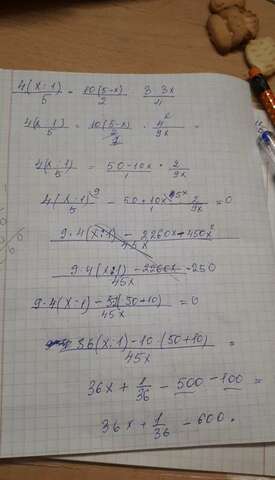 4(x:1)/5 = 10(5-x)/2 3:3x/4
4(x:1)/5 = 10(5-x)/2 · 4/9x =
4(x:1)/5 = 50-10x/1 · 2/9x
4(x:1)/5 - 50+10x/1 · 2/9x = 0
9·4(x:1) - 2260x+450x²/45x
9·4(x:1) - 2260x-250/45x
9·4(x-1) - (50+10)/45x = 0
36(x:1)-10(50+10)/45x =
36x + 1/36 - 500 - 100 =
36x + 1/36 - 600.